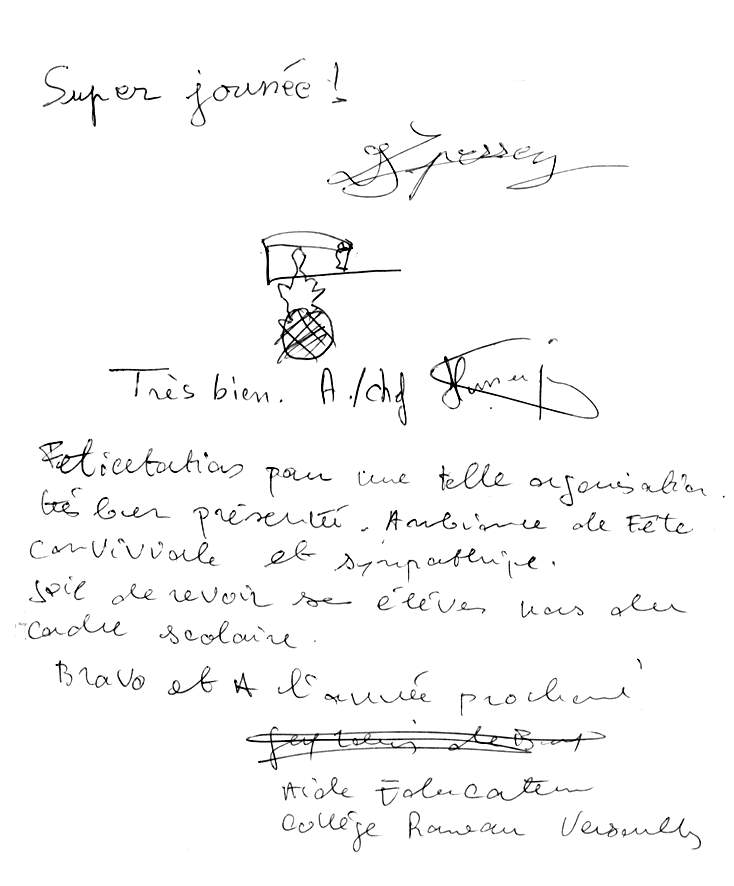 Super jounée !
Très bien. A./chef
Felicitations pour une telle organisation.
très bien présentée. Ambiance de Fête
Conviviale et sympathique.
Joie de revoir se élèves hors du
cadre scolaire.
Bravo et A l'année prochaine
Aide Educateur
Collège Rameau Versailles